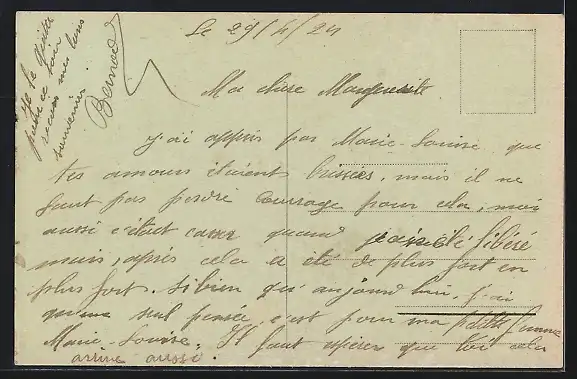 Le 29/4/24
Ma chère Marguerite
j'ai appris par Marie-Louise que
tes amours étaient brisées, mais il ne
faut pas perdre courage pour cela, moi
aussi c'était cassé quand j'ai été libéré
mais, après cela a été de plus fort en
plus fort. si bien qu'aujourd'hui, j'ai
qu'une seul pensée, c'est pour ma petite femme
Marie-Louise. Il faut espérer que toi cela
arrive aussi.
Je te quitte
pour ce soir
reçois mes bons
souvenirs.
Bernard